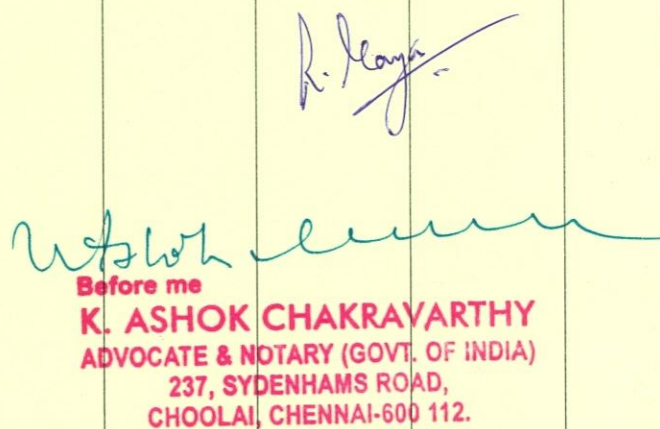 K. Ashok
Before me
K. ASHOK CHAKRAVARTHY
ADVOCATE & NOTARY (GOVT. OF INDIA)
237, SYDENHAMS ROAD,
CHOOLAI, CHENNAI-600 112.